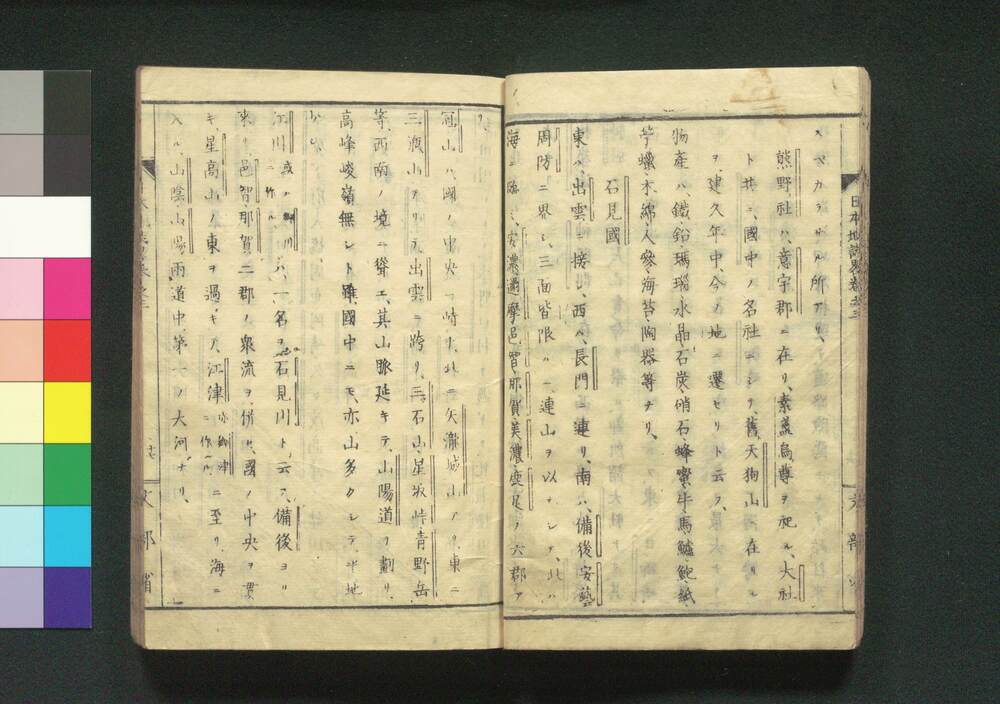 日本地誌略卷之三
スベカラザル所アリ、
熊野社ハ、意宇郡ニ在リ、素盞烏尊ヲ祀ル、大社
ト共ニ、國中ノ名社ニシテ、舊、天狗山ニ在リシ
ヲ、建久年中、今ノ地ニ遷セリト云フ、
物產ハ、鐵鉛瑪瑙水晶石炭、硝石、蜂蜜、牛馬鱸鮑、紙
苧蠟木綿、人參、海苔陶器等ナリ、
石見國
東ハ、出雲ニ接シ、西ハ、長門ニ連リ、南ハ、備後安藝
周防ニ界シ、三面皆限ルニ連山ヲ以テシテ、北ハ
海ニ臨ミ、安濃邇摩邑智、那賀、美濃鹿足ノ六郡ア
冠山ハ國ノ中央ニ峙チ、北ニ矢瀧城山アリ、東ニ
三瓶山アリテ、出雲ニ跨リ、三石山、星坂峠、青野岳
等、西南ノ境ニ聳エ、其山脈延キテ、山陽道ヲ劃リ、
高峰峻嶺無シト雖、國中ニモ、亦山多クシテ、平地
少シ、
江川 或ハ川ニ作ル ハ、一名ヲ石見川ト云フ、備後ヨリ
來リ、邑智、那賀二郡ノ衆流ヲ併セ、國ノ中央ヲ貫
キ、星高山ノ東ヲ過ギテ、江津 亦津ニ作ル ニ至リ、海ニ
入ル、山陰山陽兩道中、第一ノ大河ナリ、
文部省